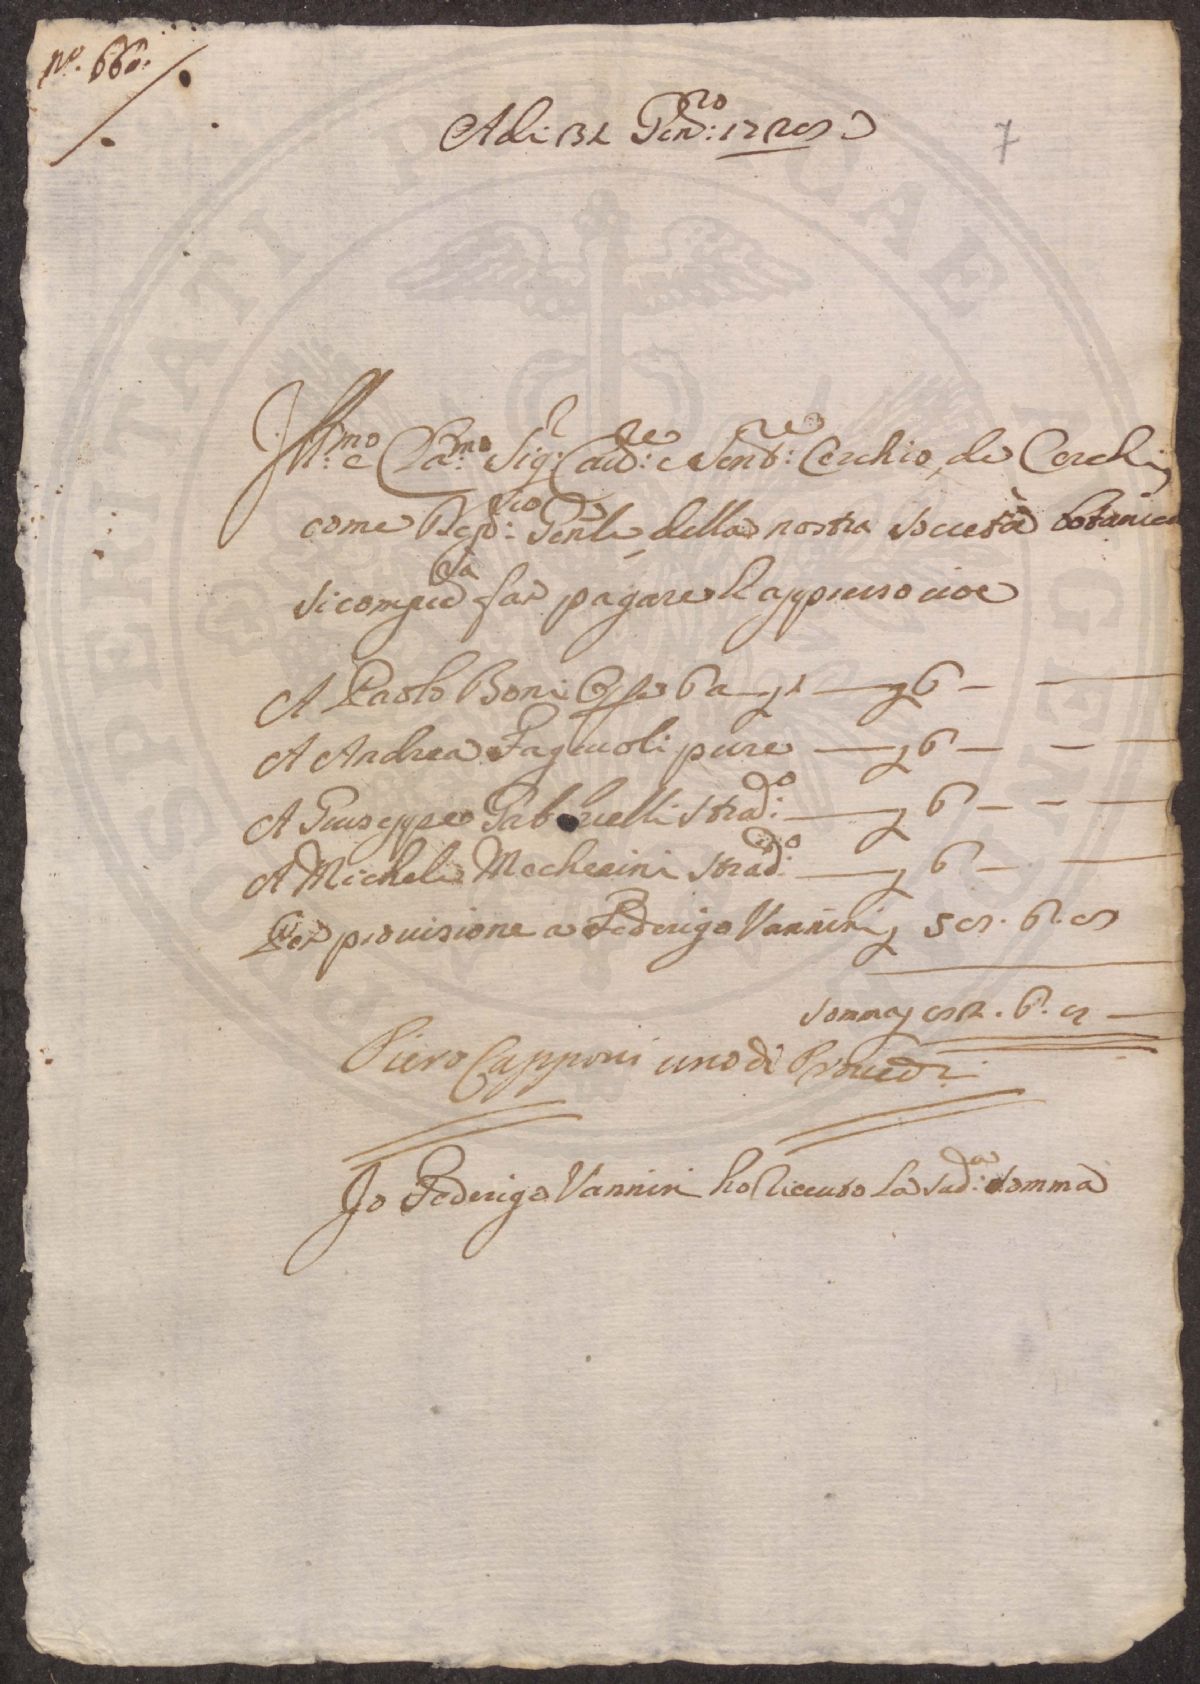 N.º 66.
Adi 31 Gen:ro 17
7
Ill:mo e Cla:mo Sig:r Cau:re e Sen:re Cerchio de Cerchi
come Dep:rio Gen:le della nostra Società botanica
si compia far pagare l'appresso cioe
A Paolo Boni Op.e 6 a — 1 — 6 —
A Andrea Fagiuoli pure — 6 — —
A Giuseppe Gabrielli strad:o — 6 — —
A Michele Mecherini strad:o — 6 — —
Per prouisione a Federigo Vannini 5 . 6.
somma . 6.
Piero Capponi uno di Proued:ri
Io Federigo Vannini ho riceuto la sud:a somma